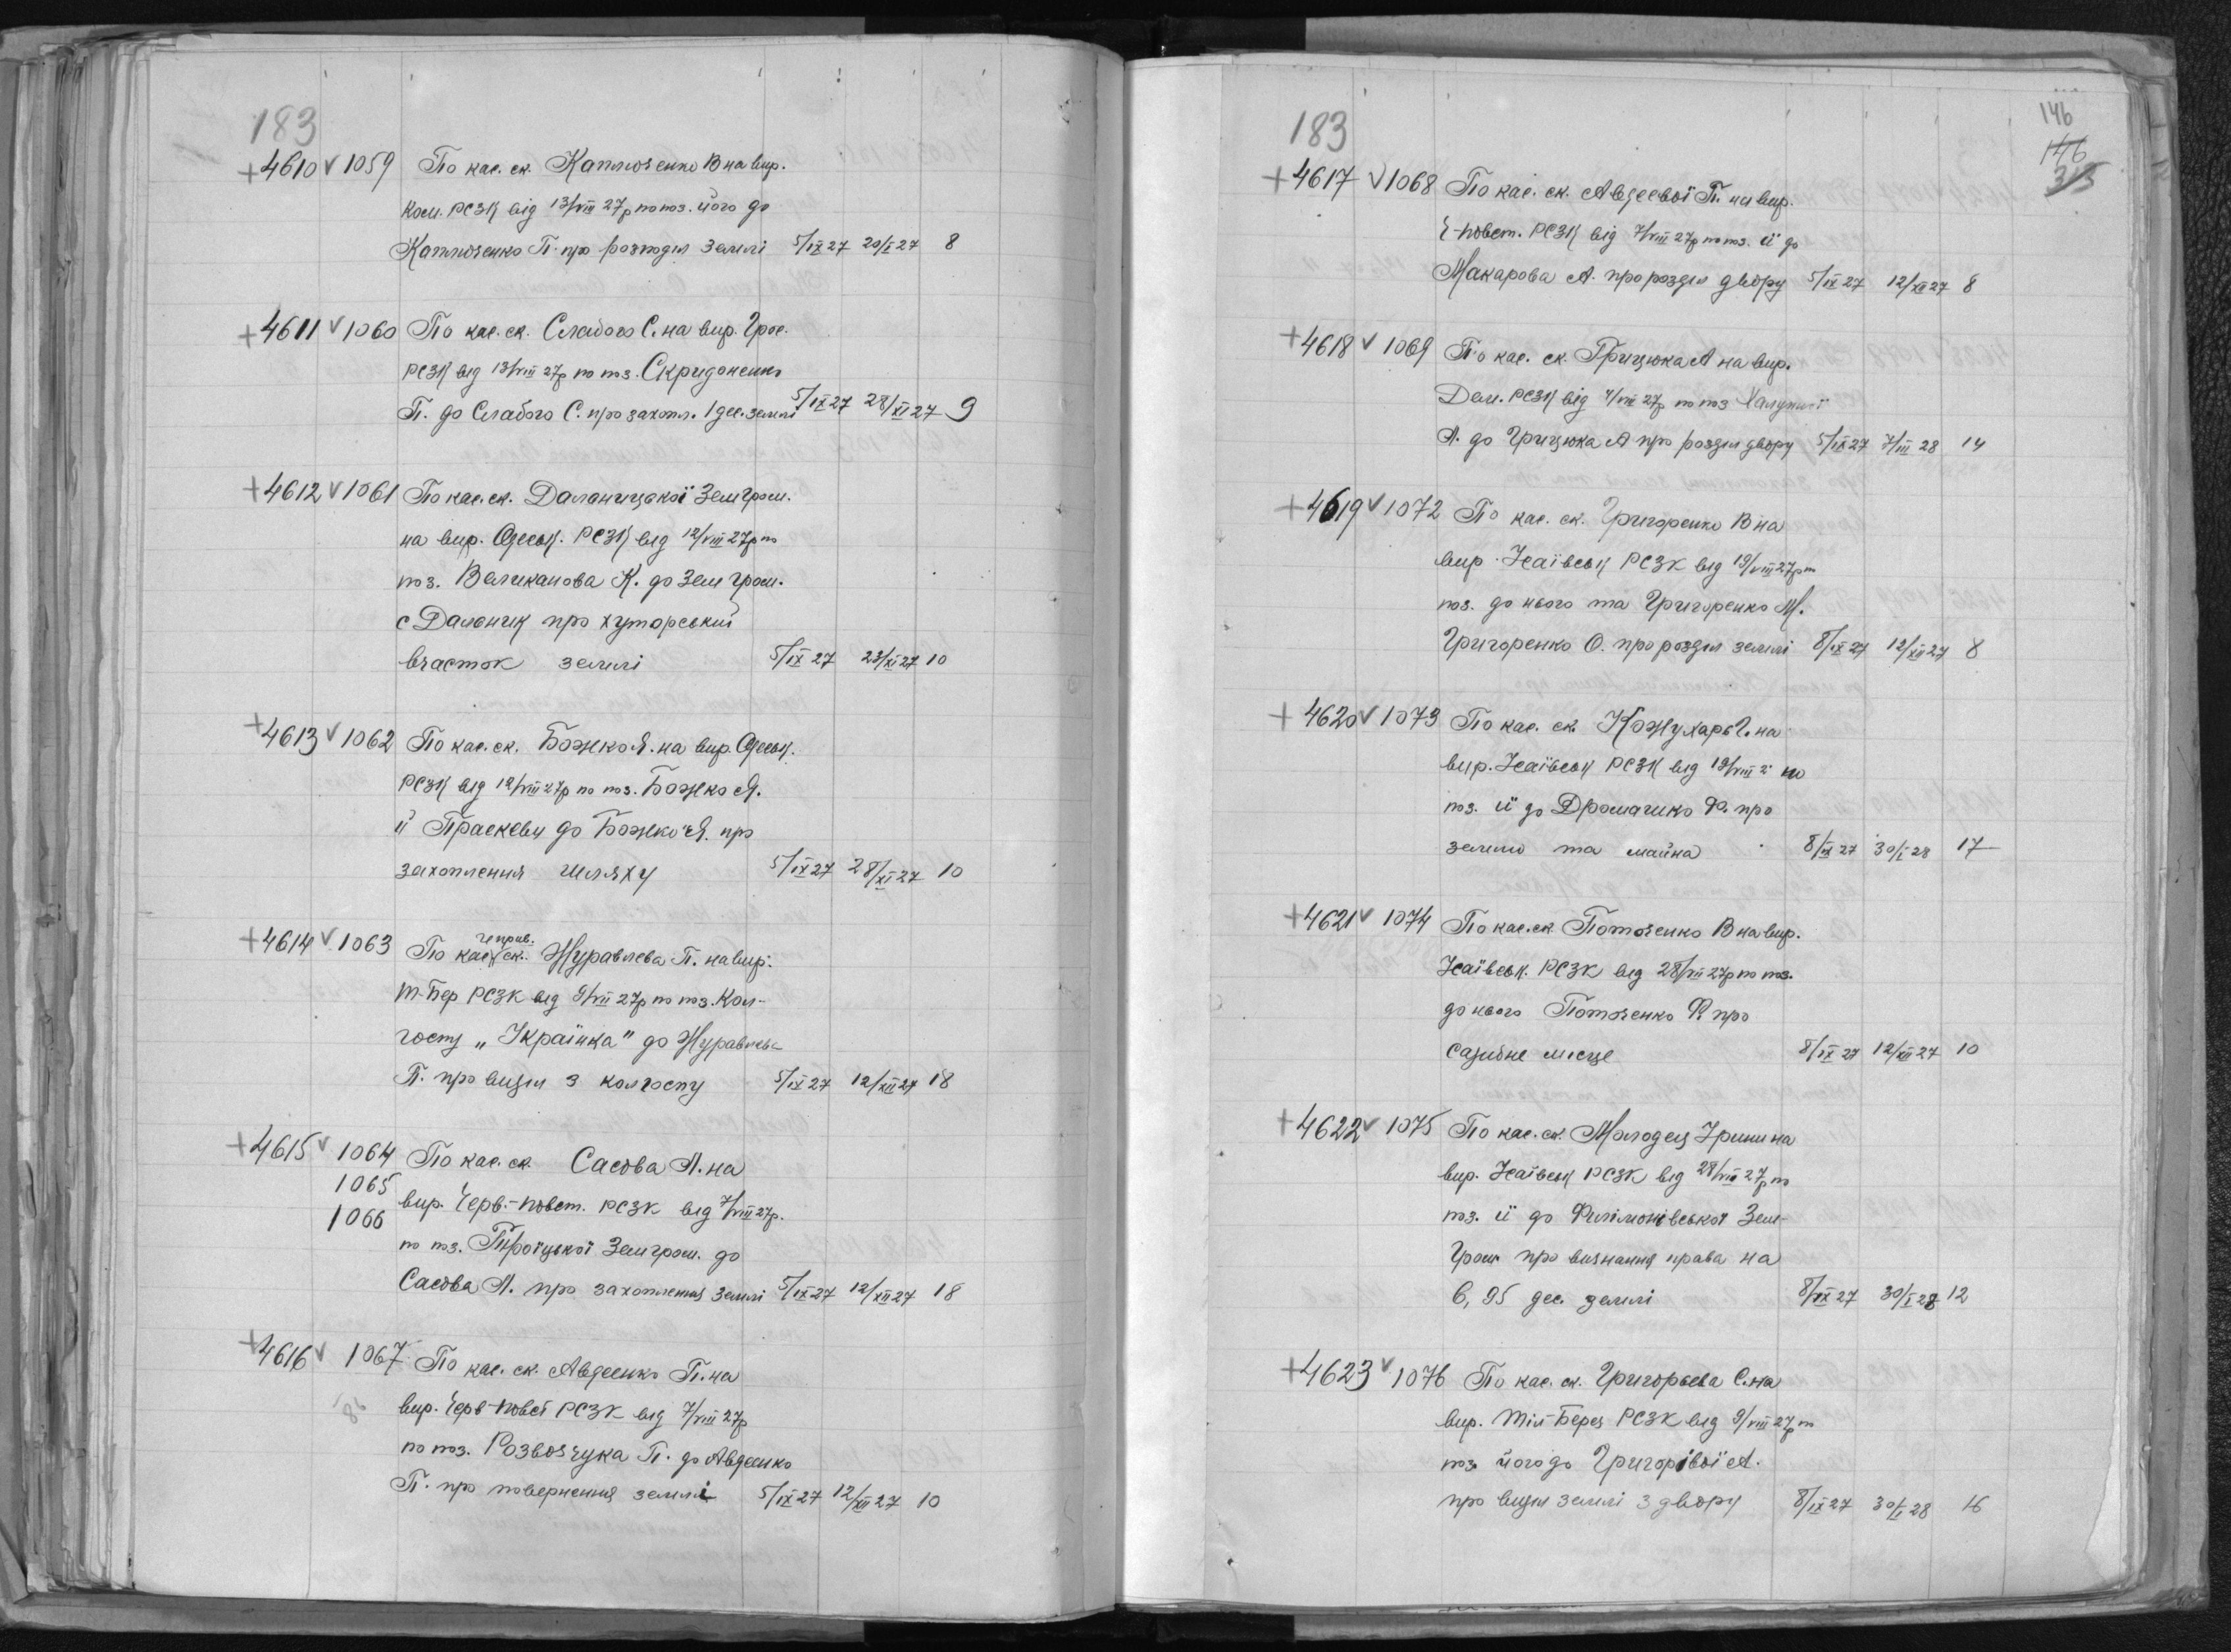 183
+4610 v 1059 По кас. ск. Каплюченко В на вир.
Ком. РСЗК від 13/VIII 27р по поз. його до
Каплюченко П. про розподіл землі 5/IX 27 20/I 27 8
+4611 v 1060 По кас. ск. Слабого С. на вир. Грос.
РСЗК від 13/VIII 27р по поз. Скридоненко
П. до Слабого С. про захопл. 1 дес. землі 5/IX 27 28/XI 27 9
+4612 v 1061 По кас. ск. Дальницької Земгром.
на вир. Одеськ. РСЗК від 12/VIII 27р по
поз. Великанова К. до Земгром.
с Дальник про хуторський
вчасток землі 5/IX 27 23/XI 27 10
+4613 v 1062 По кас. ск. Божко Я. на вир. Одеськ.
РСЗК від 12/VIII 27р по поз. Божко Я.
й Праскеви до Божко Я. про
захоплення шляху 5/IX 27 28/XI 27 10
+4614 v 1063 По кас. ск. Журавлева П. на вир.
Т-Бер РСЗК від 9/VII 27р по поз. Кол-
госпу „Украінка" до Журавлева
П. про виділ з колгоспу 5/IX 27 12/XII 27 18
+4615 v 1064 По кас. ск. Сасова Л. на
1065 вир. Черв.-Повст. РСЗК від 7/VIII 27р.
1066
по поз. Троїцької Земгром. до
Сасова Л. про захоплення землі 5/IX 27 12/XII 27 18
+4616 v 1067 По кас. ск. Авдеенко П. на
вир. Черв-Повст РСЗК від 7/VIII 27р
по поз. Розвозчука П. до Авдеенко
П. про повернення землі 5/IX 27 12/XII 27 10
183
146
146
313
+4617 v 1068 По кас. ск. Авдеевої П. на вир.
Ч-Повст. РСЗК від 7/VIII 27р по поз. її до
Макарова А. про розділ двору 5/IX 27 12/XII 27 8
+4618 v 1069 По кас. ск. Грицюка А на вир.
Дем. РСЗК від 4/VIII 27р по поз
Л. до Грицюка А про розділ двору 5/IX 27 7/III 28 14
+4619 v 1072 По кас. ск. Григоренко В на
вир. Исаївськ РСЗК від 19/VIII 27р по
поз. до нього та Григоренко М.
Григоренко О. про розділ землі 8/IX 27 12/XII 27 8
+4620 v 1073 По кас. ск. Кожухарь Г. на
вир. Исаївськ РСЗК від 19/VIII 2 по
поз. її до Дромашко Ф. про
землю та майна 8/IX 27 30/I 28 17
+4621 v 1074 По кас. ск. Поточенко В на вир.
Исаївськ. РСЗК від 28/VII 27р по поз.
до нього Поточенко Ф. про
садибне місце 8/IX 27 12/XII 27 10
+4622 v 1075 По кас. ск. Молодец Ірини на
вир. Исаївськ РСЗК від 28/VII 27р по
поз. її до Филімонівської Зем-
гром про визнання права на
6,95 дес. землі 8/IX 27 30/I 28 12
+4623 v 1076 По кас. ск. Григорьева С. на
вир. Тіл-Берез РСЗК від 9/VIII 27р по
поз. його до Григорівої А.
про виділ землі з двору 8/IX 27 30/I 28 16